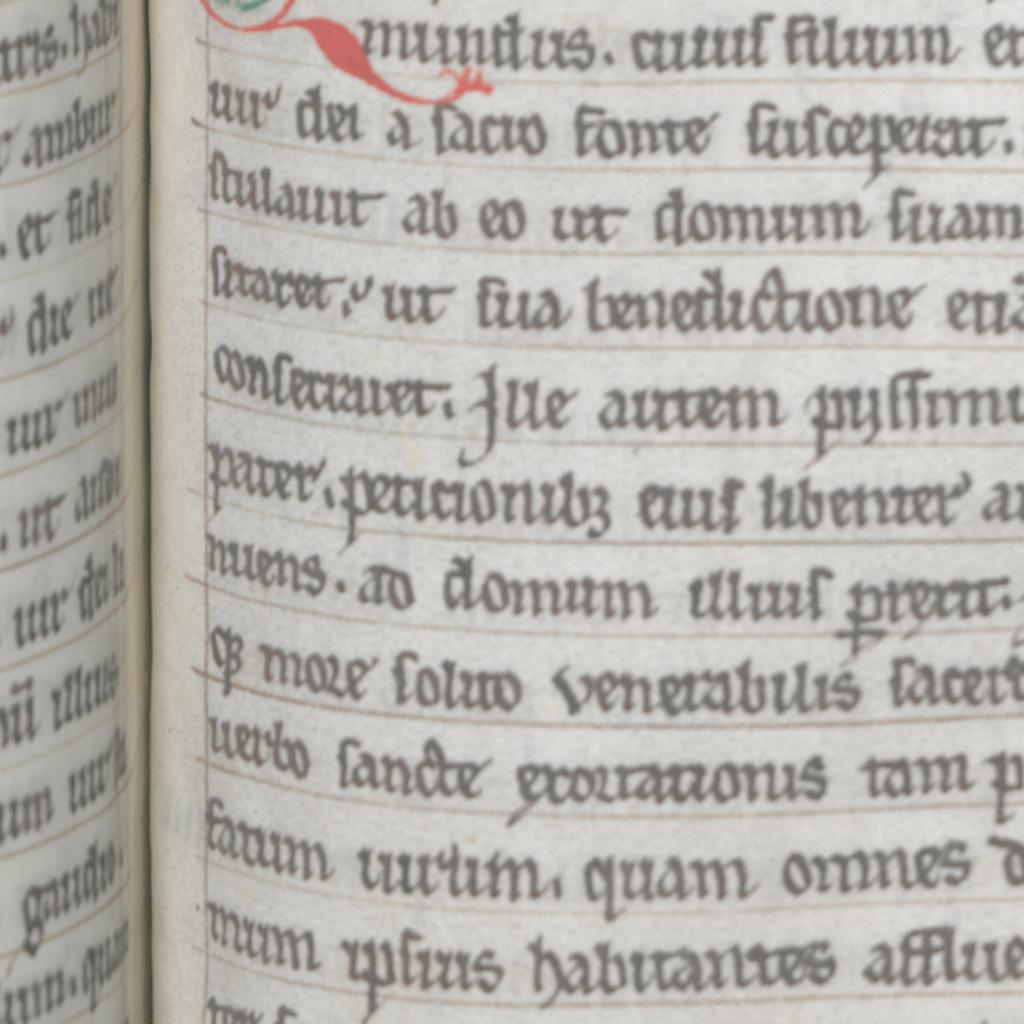 tris. habe
. ambur
. et fide
die ut
uir uni
. ut audi
uir dei
illius
um
gaudio.
quam
mundus. cuius filium et
uir dei a sacro fonte susceperat.
stulauit ab eo ut domum suam
sitaret, ut sua benedictione etiā
consecraret. Ille autem pyssimu
pater, peticionibꝫ eius libenter an
nuens. ad domum illius p̱rexit.
ꝙ more solito venerabilis sacerd
uerbo sancte exortationis tam p
fatum uirum, quam omnes d
mum ipsius habitantes afflue